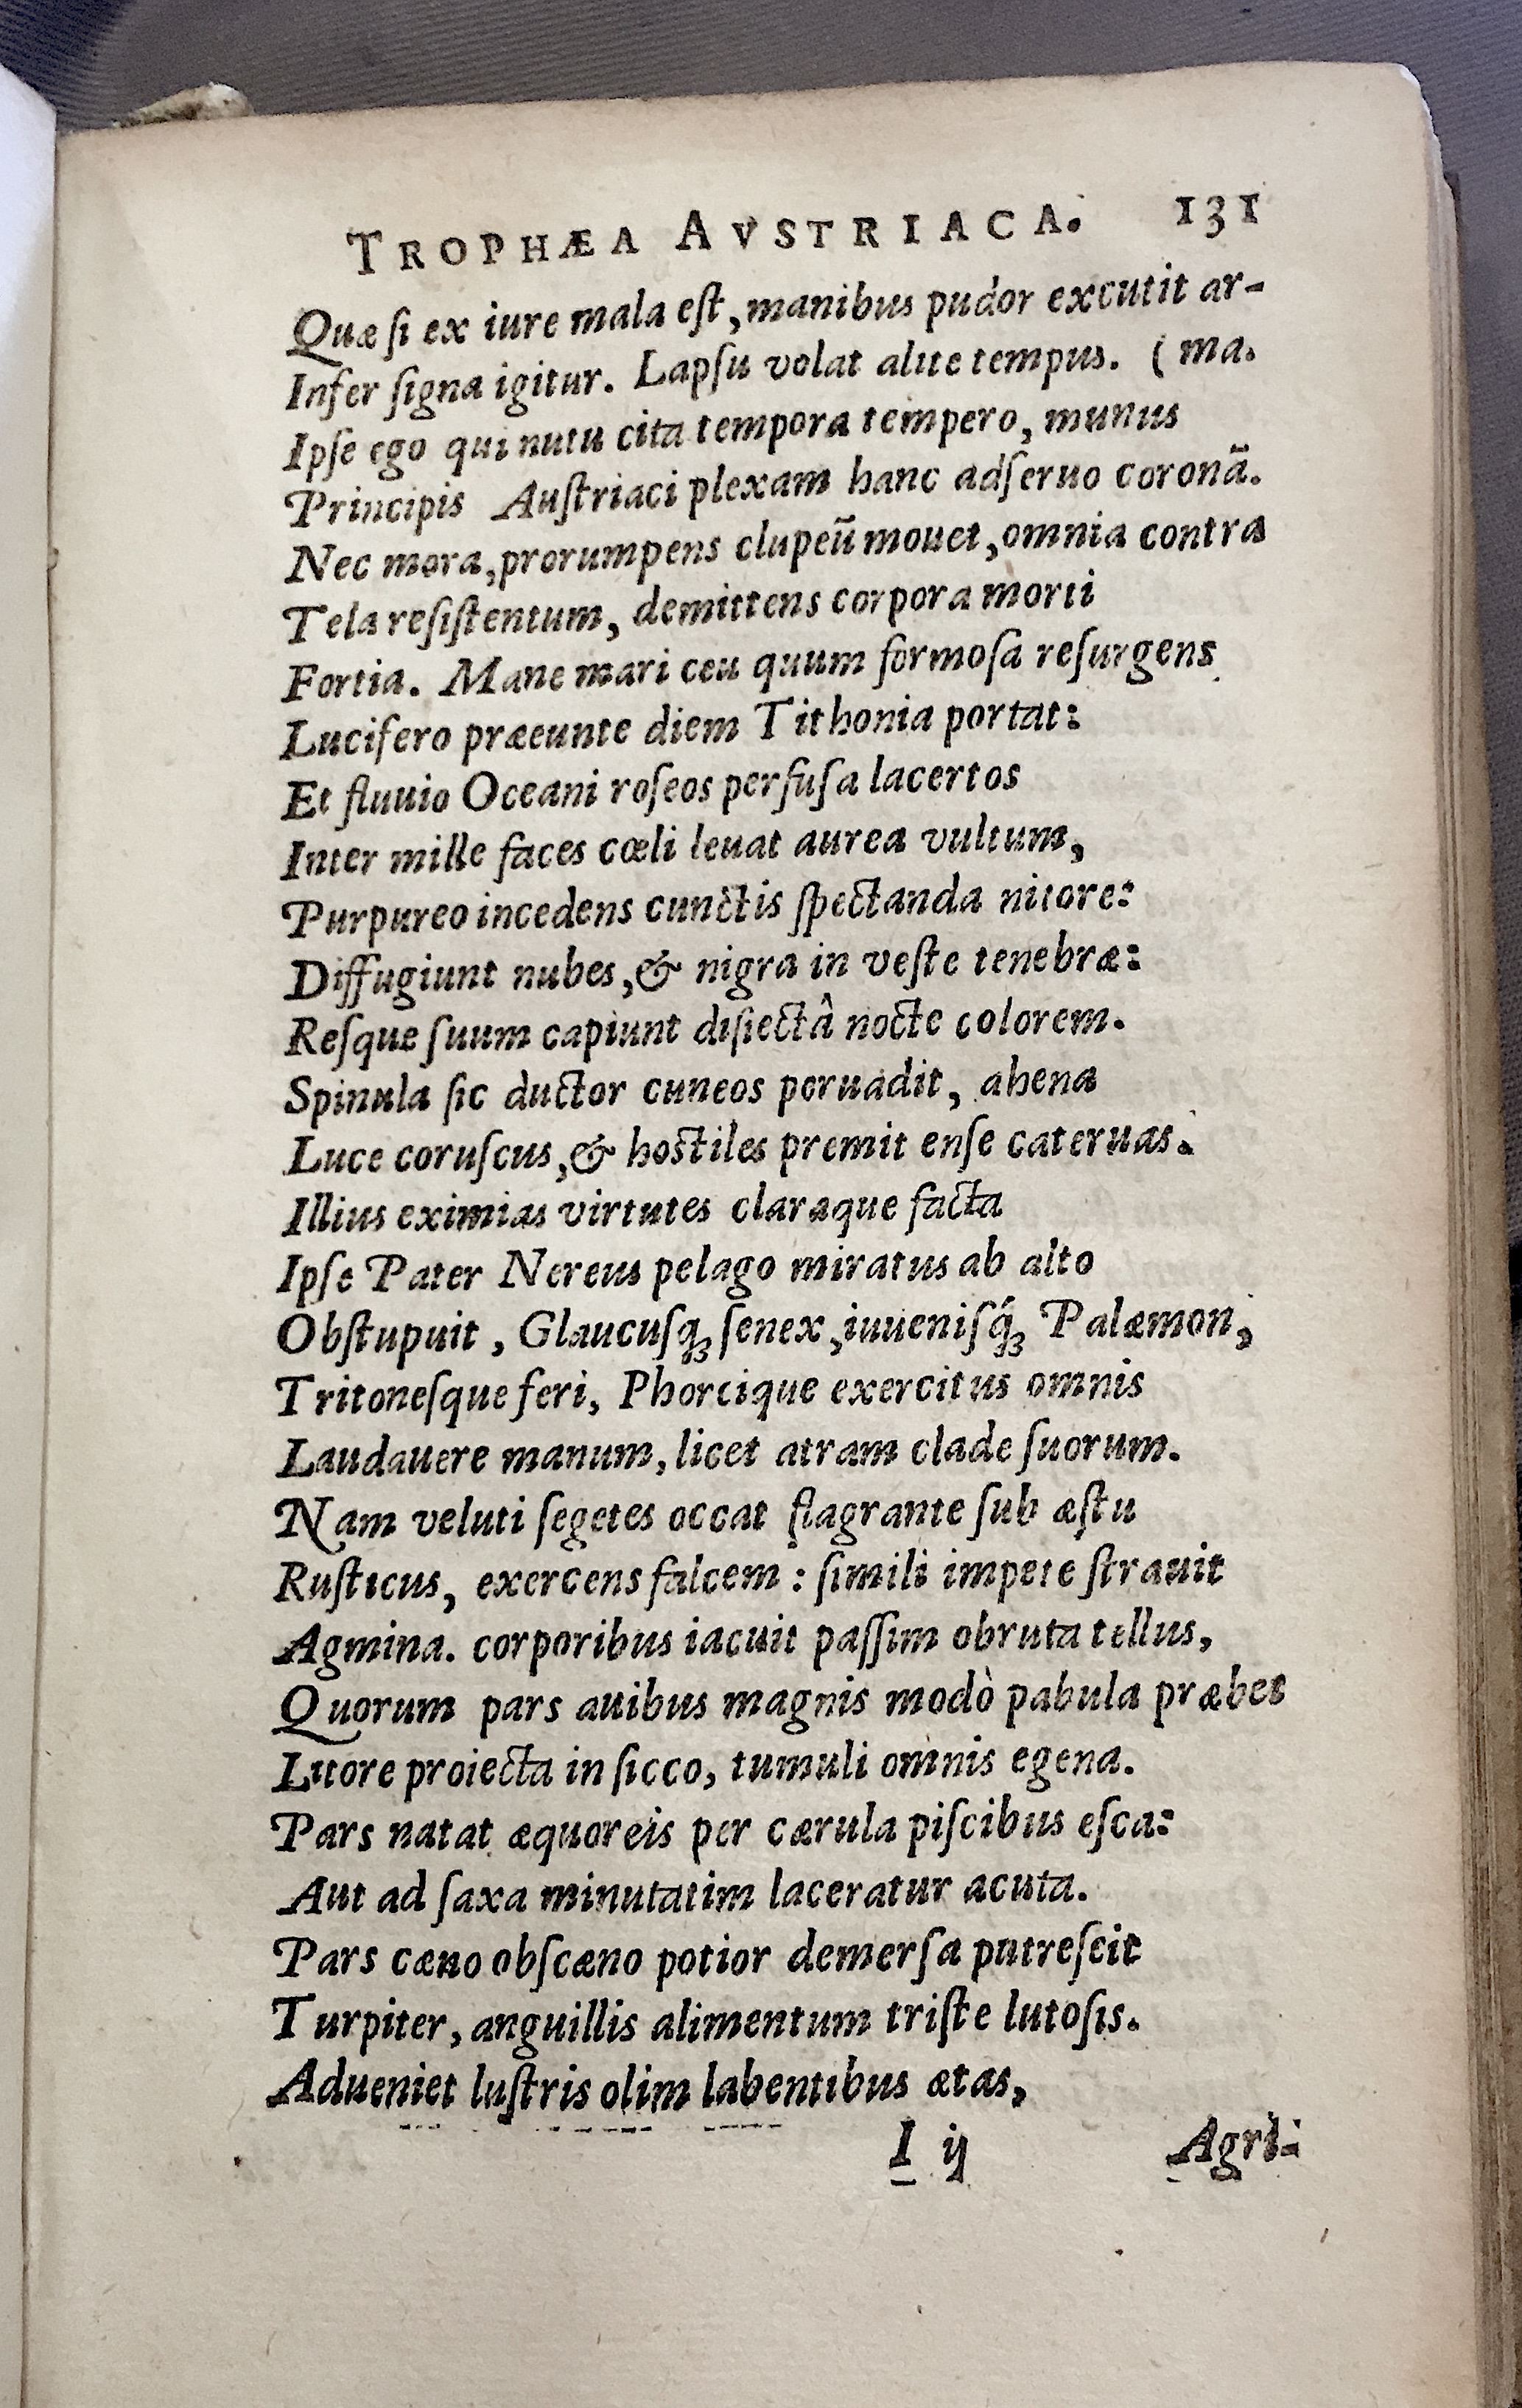 TROPHÆA AVSTRIACA. 131
Quæ ſi ex iure mala eſt, manibus pudor excutit ar-
Infer ſigna igitur. Lapſu volat alite tempus. (ma.
Ipſe ego qui nutu cita tempora tempero, munus
Principis Auſtriaci plexam hanc adſeruo coronã.
Nec mora, prorumpens clupeũ mouet, omnia contra
Tela reſiſtentum, demittens corpora morti
Fortia. Mane mari ceu quum formoſa reſurgens
Lucifero præeunte diem Tithonia portat:
Et fluuio Oceani roſeos perfuſa lacertos
Inter mille faces cœli leuat aurea vultum,
Purpureo incedens cunctis ſpectanda nitore:
Diffugiunt nubes, & nigra in veſte tenebræ:
Reſque ſuum capiunt diſiectâ nocte colorem.
Spinula ſic ductor cuneos peruadit, ahena
Luce coruſcus, & hostiles premit enſe cateruas.
Illius eximias virtutes claraque facta
Ipſe Pater Nereus pelago miratus ab alto
Obſtupuit, Glaucuſqꝫ ſenex, iuueniſq́ꝫ Palæmon,
Tritoneſque feri, Phorcique exercitus omnis
Laudauere manum, licet atram clade ſuorum.
Nam veluti ſegetes occat flagrante ſub æſtu
Ruſticus, exercens falcem: ſimili impete ſtrauit
Agmina. corporibus iacuit paſſim obruta tellus,
Quorum pars auibus magnis modò pabula præbet
Litore proiecta in ſicco, tumuli omnis egena.
Pars natat æquoreis per cærula piſcibus eſca:
Aut ad ſaxa minutatim laceratur acuta.
Pars cæno obſcæno potior demerſa putreſcit
Turpiter, anguillis alimentum triſte lutoſis.
Adueniet luſtris olim labentibus ætas,
I ij Agri-